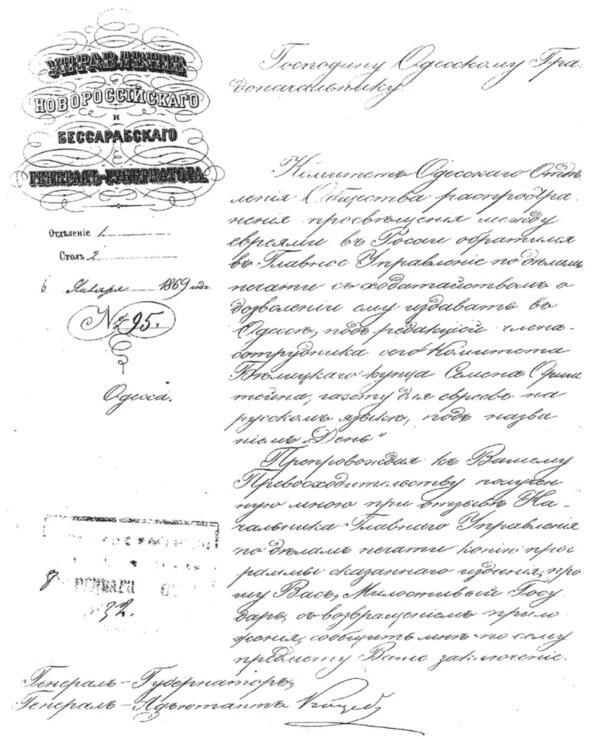 УПРАВЛЕНІЕ
НОВОРОССІЙСКАГО
И
БЕССАРАБСКАГО
ГЕНЕРАЛЪ-ГУБЕРНАТОРА.
Отдѣленіе 1.
Столъ 2.
6 Января 1869 года.
№ 95.
Одесса.
Господину Одесскому Гра
доначальнику.
Комитетъ Одесскаго Отдѣ
ленія Общества распростра
ненія просвѣщенія между
евреями въ Россіи обратился
въ Главное Управленіе по дѣламъ
печати съ ходатайствомъ о
дозволеніи ему издавать въ
Одессѣ, подъ редакціей члена-
сотрудника сего Комитета
купца Семена Орнш
тейна, газету для евреевъ на
русскомъ языкѣ, подъ назва
ніемъ „День"
Препровождая къ Вашему
Превосходительству получен
ную мною при отзывѣ На-
чальника Главнаго Управленія
по дѣламъ печати копію прог
раммы сказаннаго изданія, про
шу Васъ, Милостивый Госу
дарь, съ возвращеніемъ прило
женія, сообщить мнѣ по сему
предмету Ваше заключеніе.
8 ЯНВАРЯ
32.
Генералъ-Губернаторъ,
Генералъ-Адъютантъ